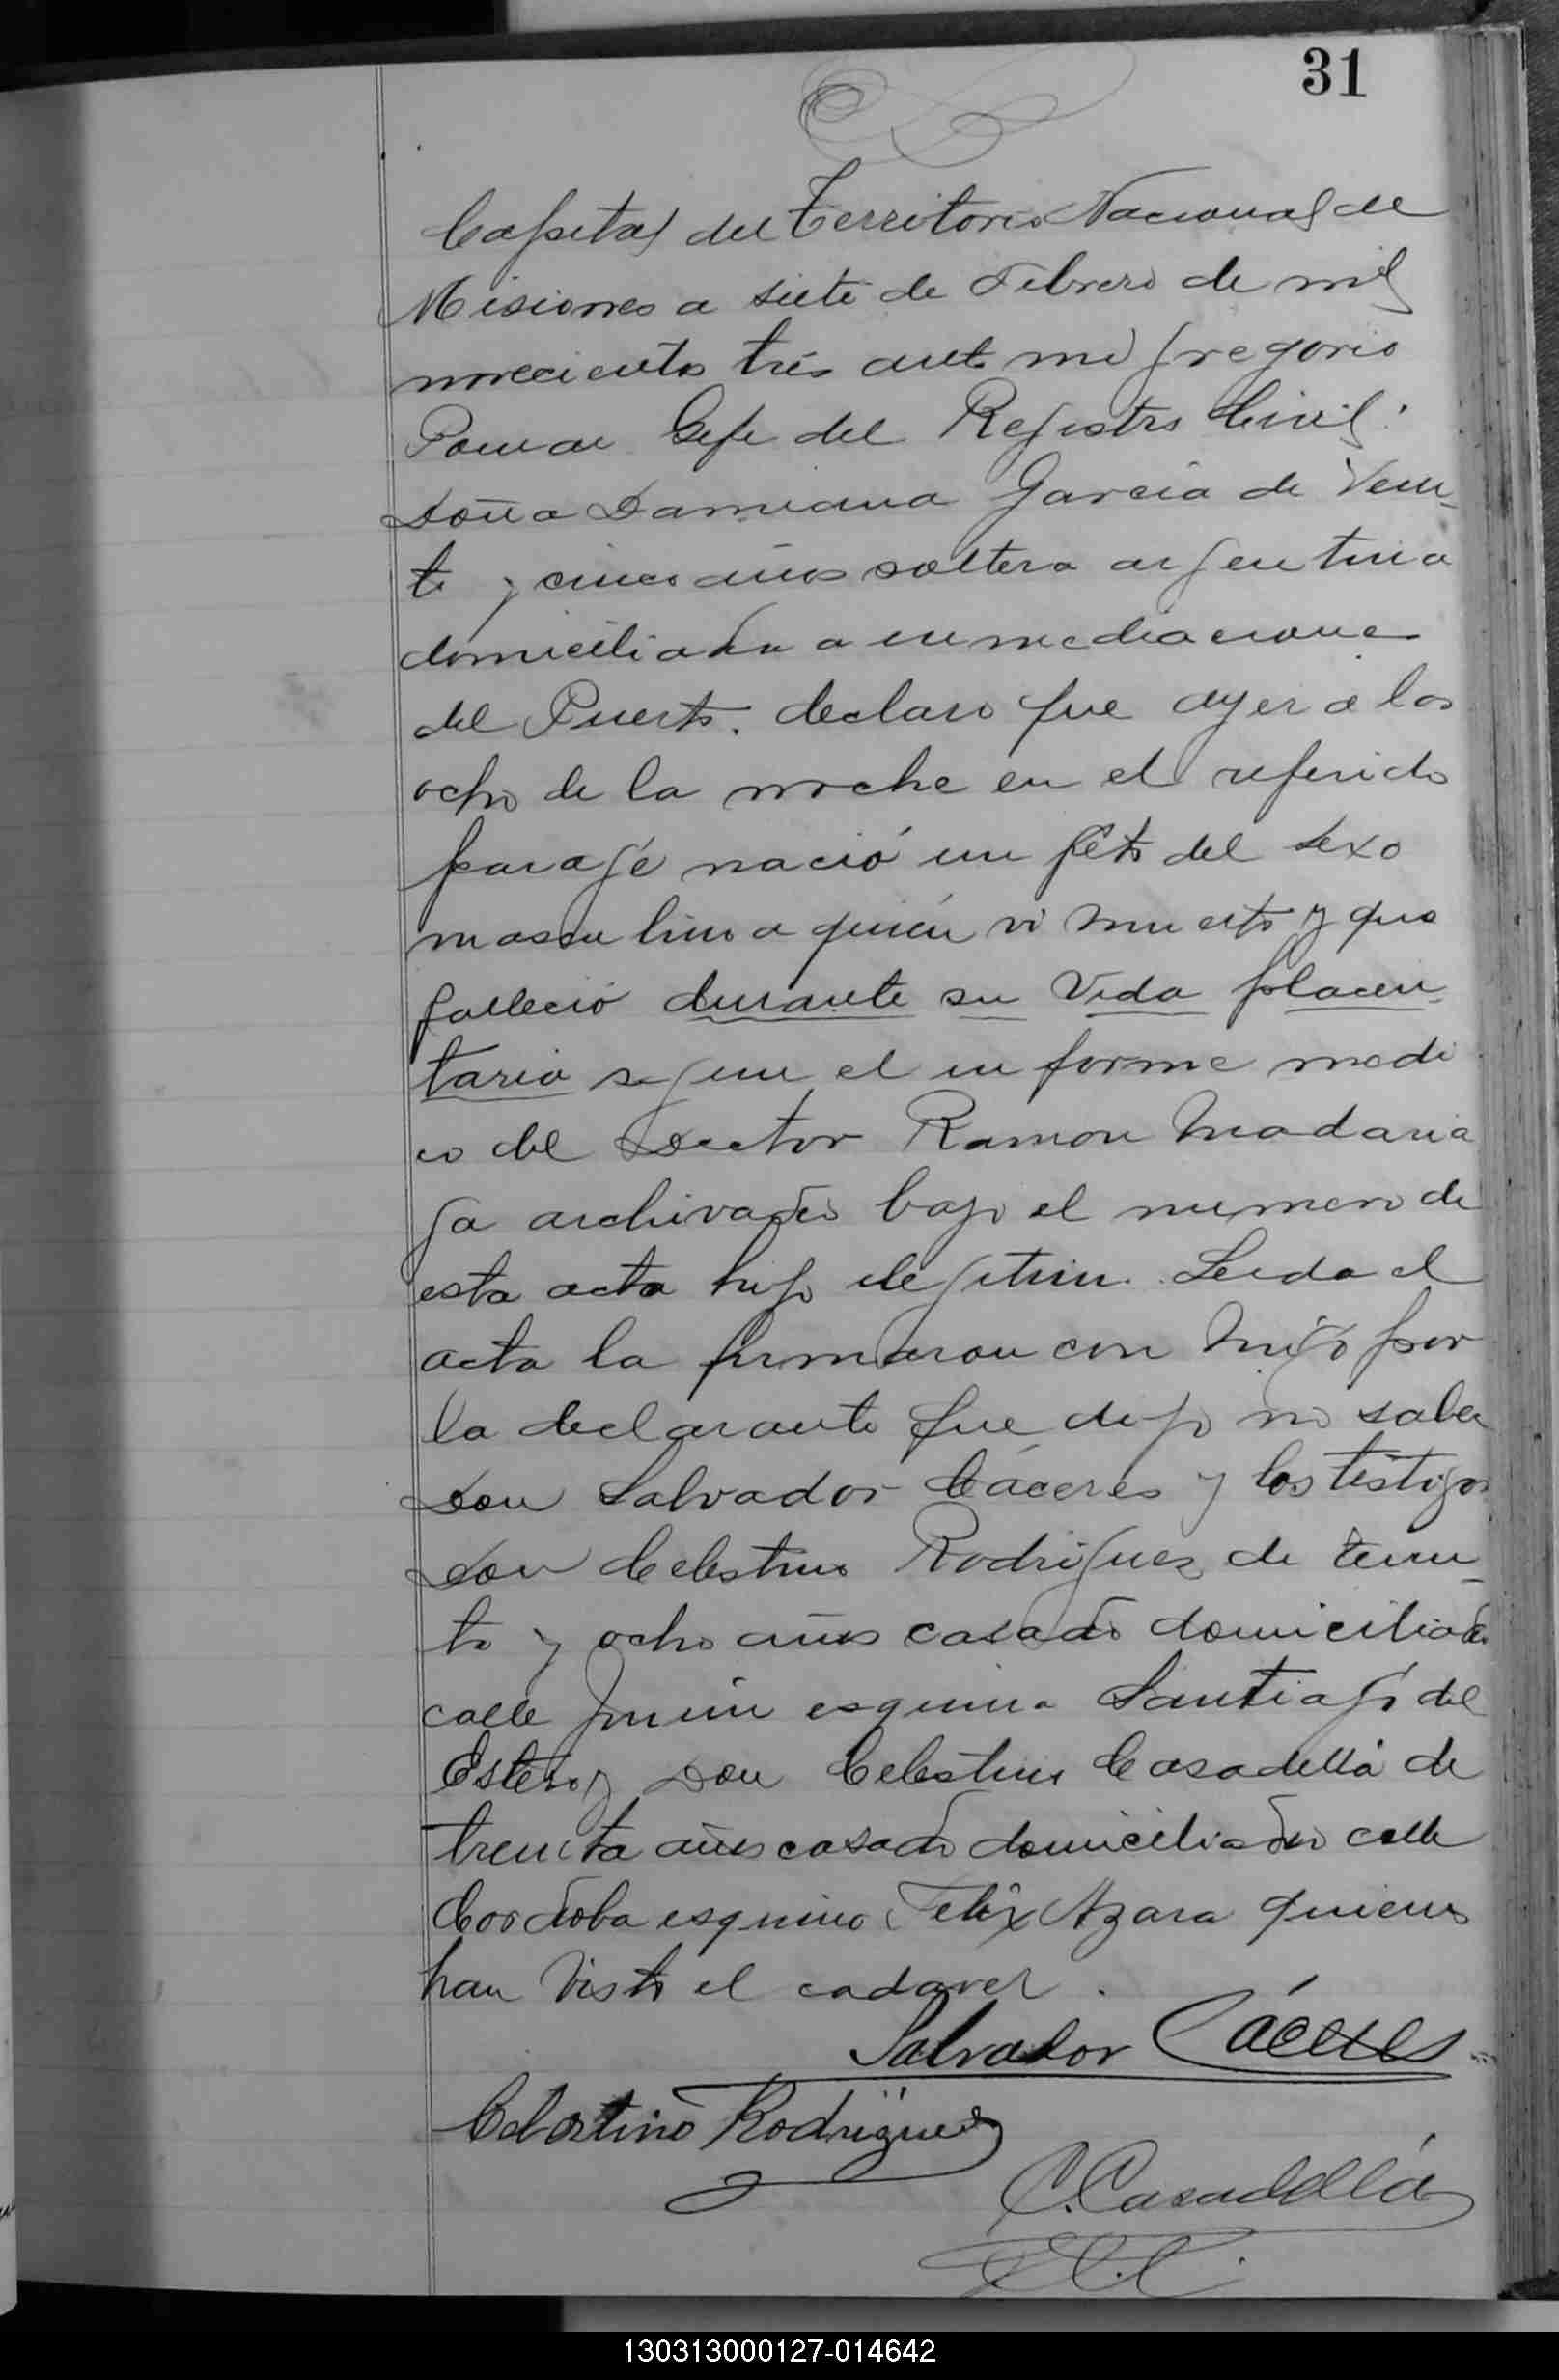 31
Capital del Territorio Nacional de
Misiones a siete de Febrero de mil
novecientos tres ante mi Gregorio
Pomar Gefe del Registro Civil:
Doña Damiana Garcia de vein-
te y cinco años soltera argentina
domiciliada a inmediaciones
del Puerto. declaro que ayer a las
ocho de la noche en el referido
paraje nació un feto del sexo
masculino a quien vi muerto y que
falleció durante su vida placen-
taria segun el informe medi
co del Doctor Ramon Madaria
ga archivado bajo el numero de
esta acta hijo ilegitimo. Leida el
acta la firmaron con migo por
la declarante que dijo no saber
Don Salvador Cáceres y los testigos
Don Celestino Rodriguez de trein-
ta y ocho años casado domiciliado
calle Junin esquina Santiago del
Estero y Don Celestino Casadellá de
treinta años casado domiciliado calle
Cordoba esquina Felix Azara quienes
han visto el cadaver.
Salvador Cáceres
Celestino Rodriguez
C. Casadellá
130313000127-014642